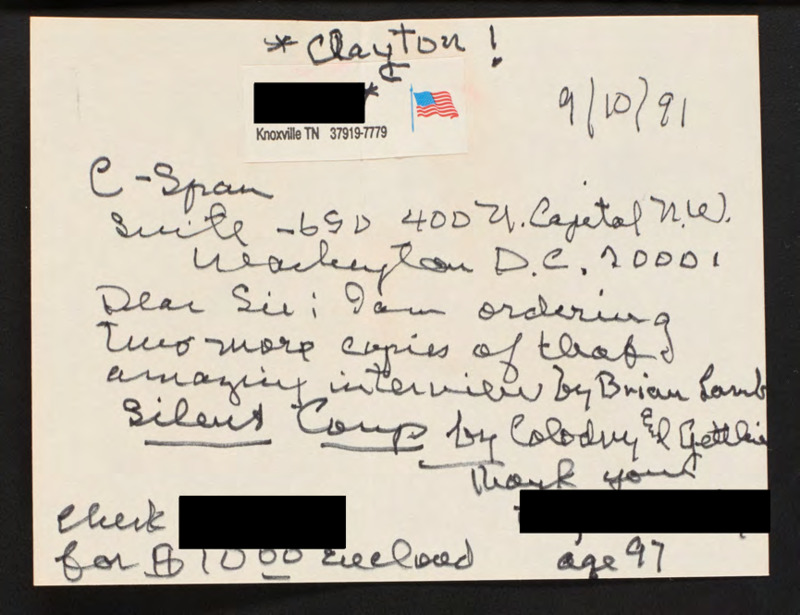 * Clayton !
*
Knoxville TN 37919-7779
9/10/91
C-Span
Suite -650 400 N. Capitol N.W.
Washington D.C. 20001
Dear Sir: I am ordering
two more copies of that
amazing interview by Brian Lamb
Silent Coup by Colodny & Gettlin
Thank you
Check
for $10 00 enclosed
age 97